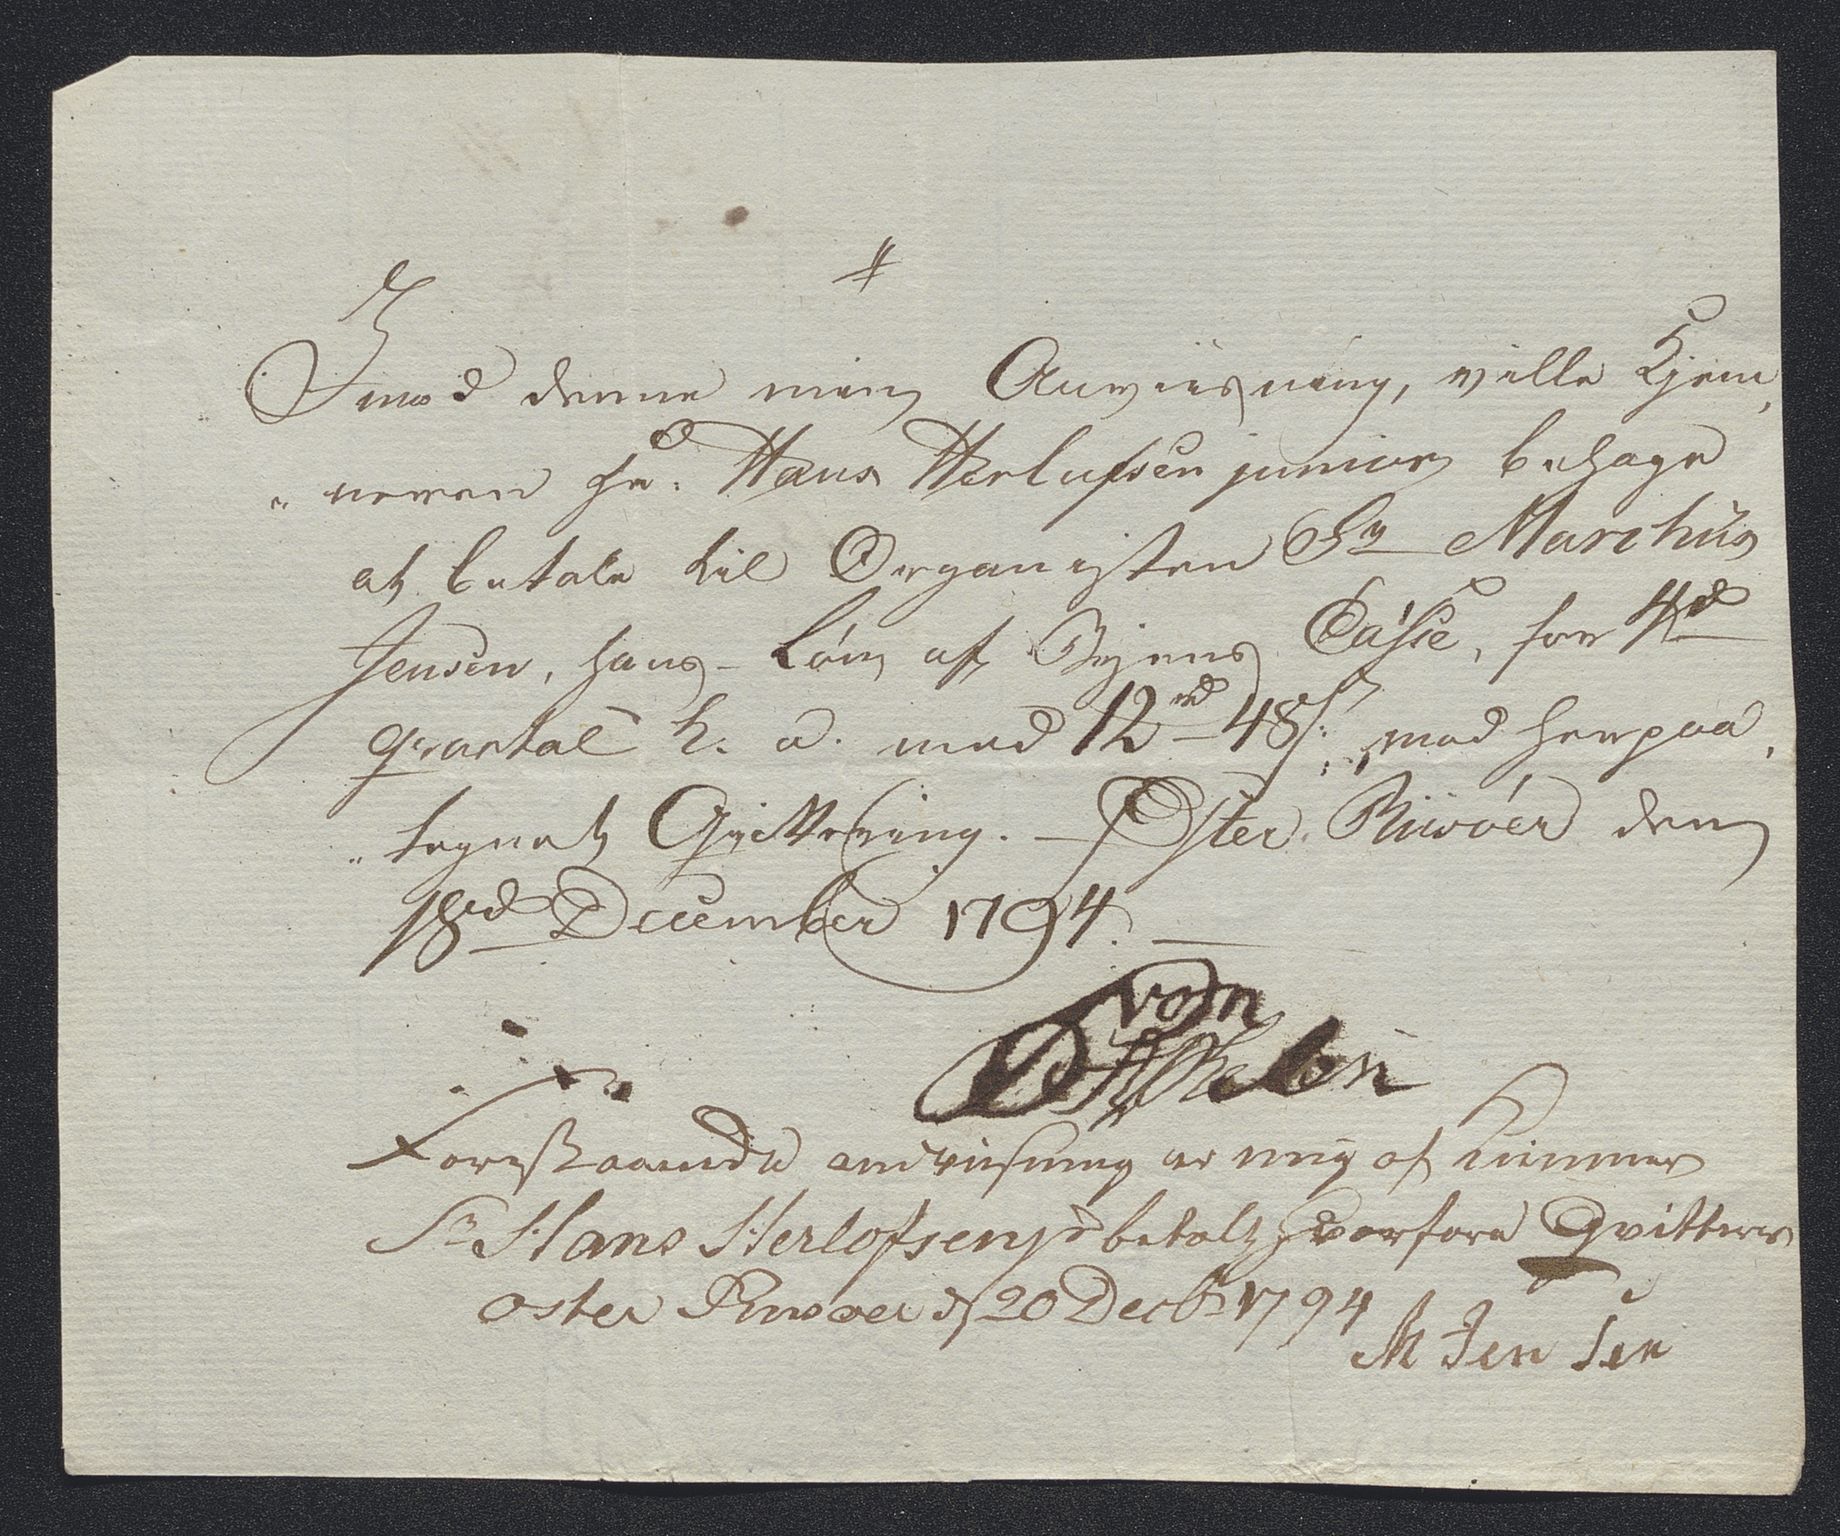 Imod denne min Anviisning, ville Kjem,
„neren Hr. Hans Herlufsen junior behage
at betale til Organisten Sr Marchus
Jensen, hans Løn af Byens Casse, for 4de
qvartal h. a. med 12rd 48s, mod herpaa,
„tegnet Qvittering. – Øster Riisøer den
18de December 1794. –
von
Foreståaende andviisning er mig af Kiemner
Sr Hans Herlofsen jr betalt hvorfore Qvitteres
oster Riisøer d 20 Decbr 1794
M Jensen